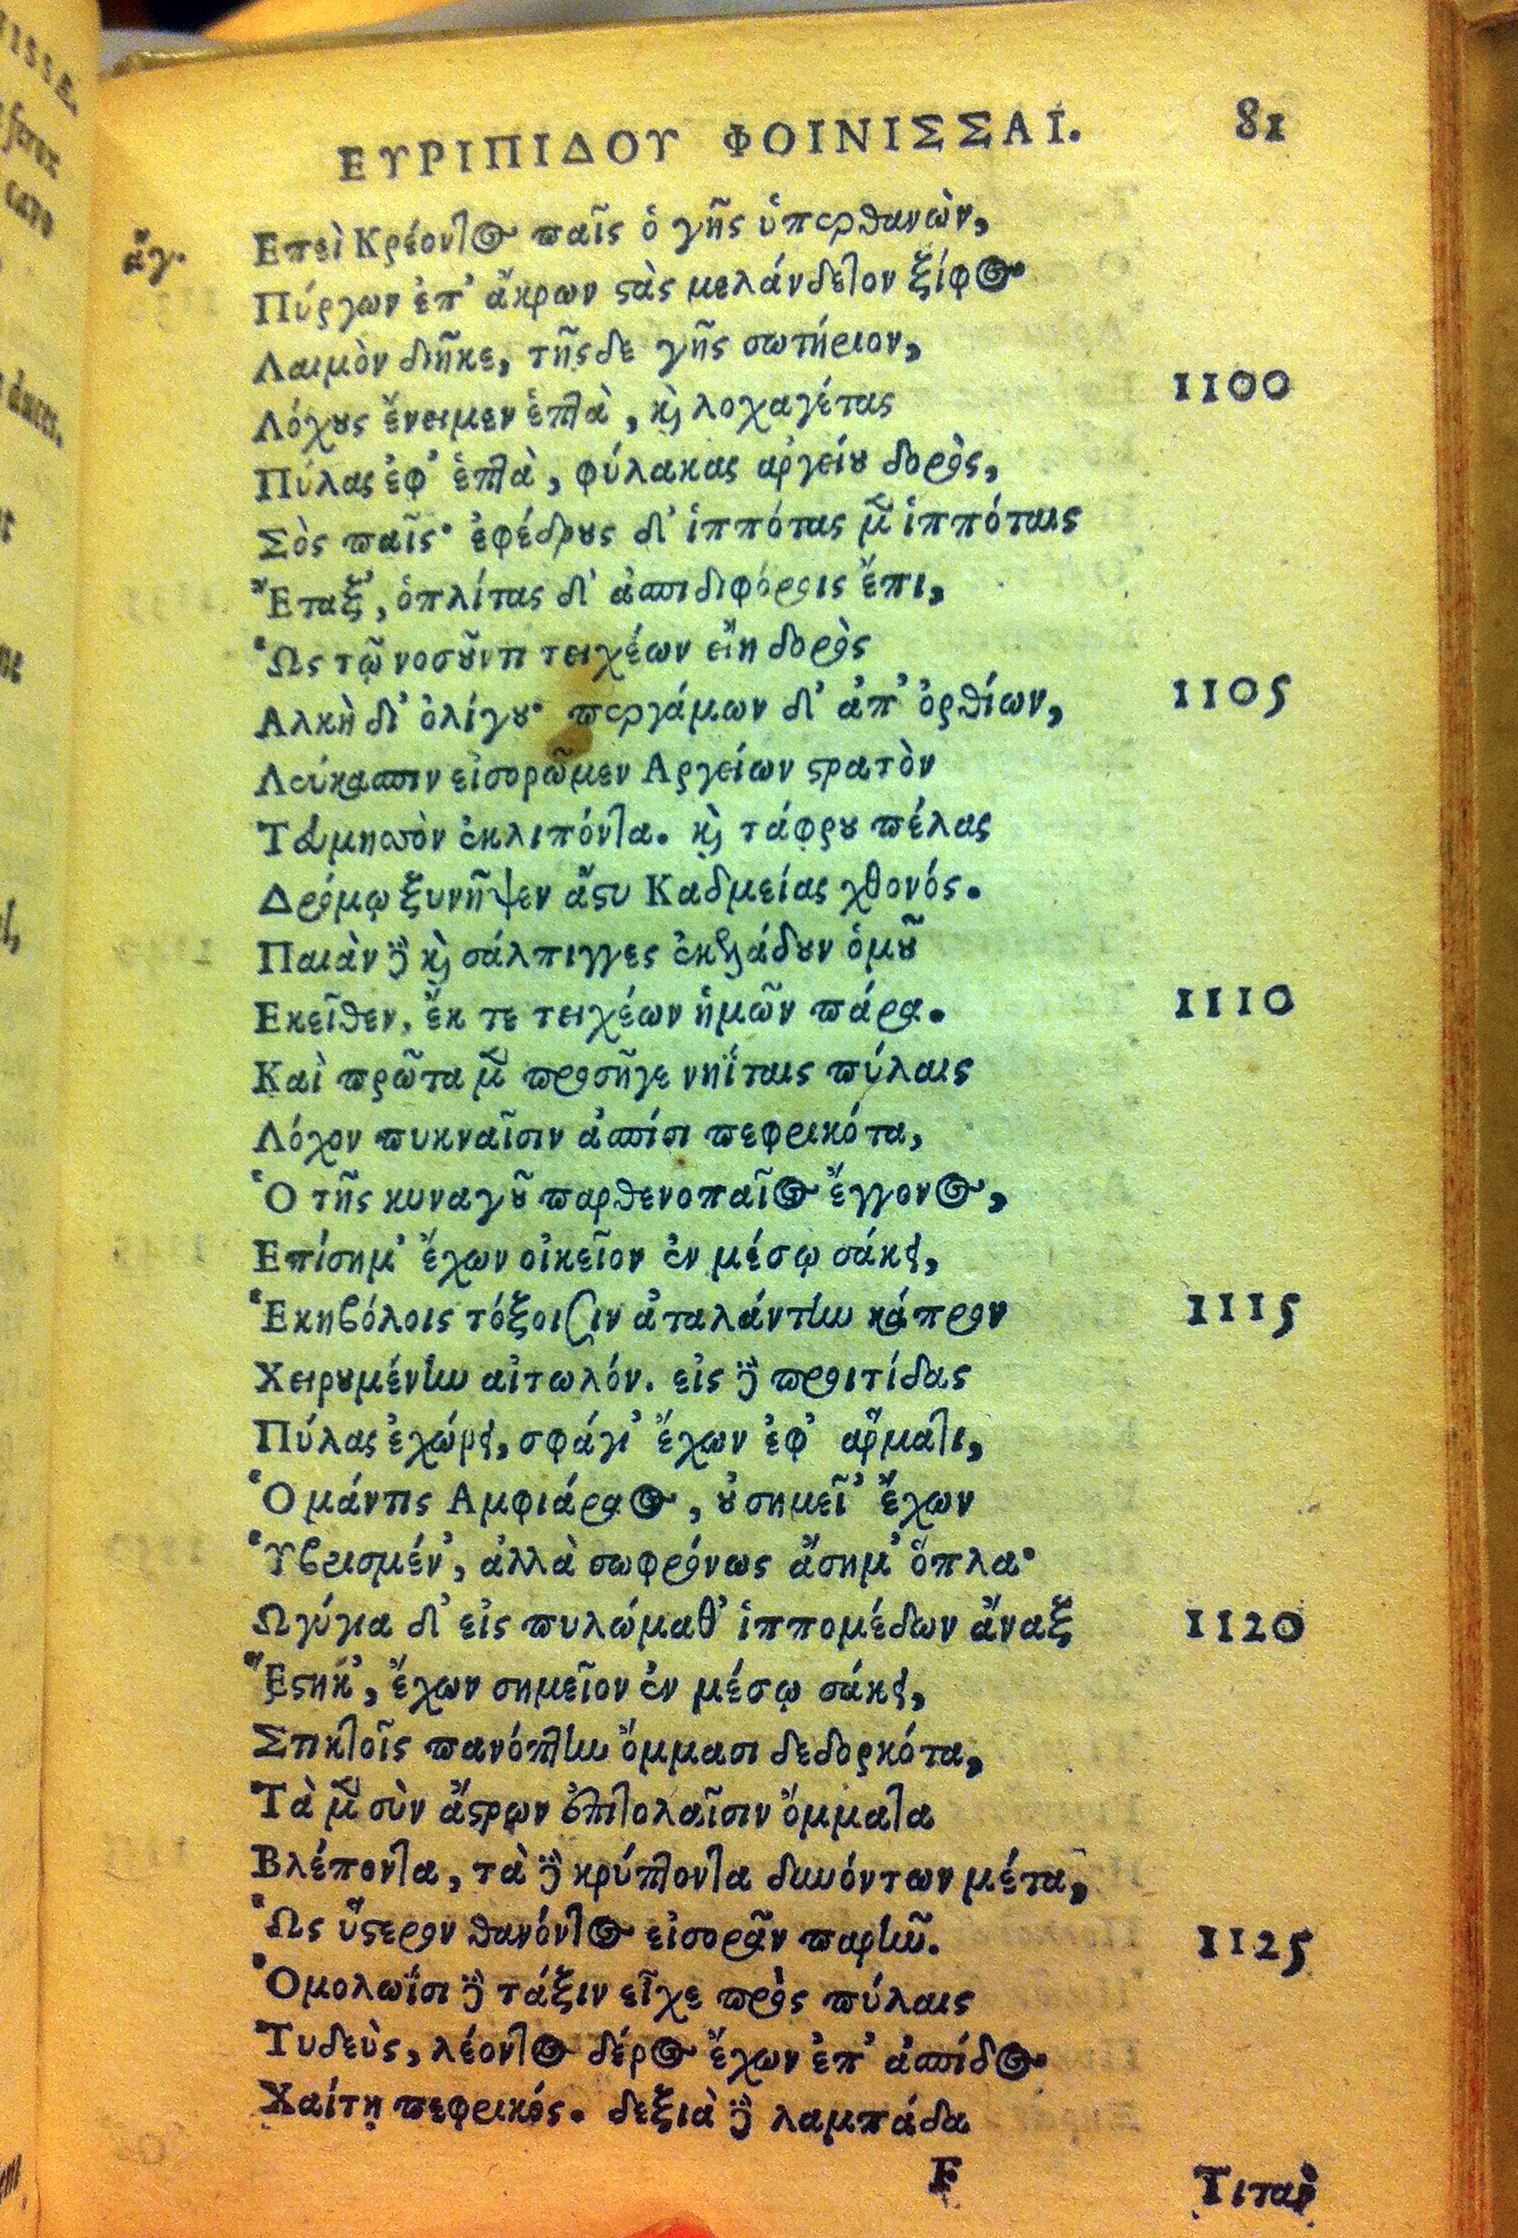 ΕΥΡΙΠΙΔΟΥ ΦΟΙΝΙΣΣΑΙ. 81
ἄγ. Επεὶ Κρέοντος παῖς ὁ γῆς ὑπερθανὼν,
Πύργων ἐπ' ἄκρων ϛὰς μελάνδετον ξίφος
Λαιμὸν διῆκε, τῆςδε γῆς σωτήριον,
Λόχους ἔνειμεν ἑπτὰ, καὶ λοχαγέτας 1100
Πύλας ἐφ' ἑπτὰ, φύλακας αργείου δορὸς,
Σὸς παῖς· ἐφέδρους δ' ἱππότας μὲν ἱππόταις
Ἔταξ', ὁπλίτας δ' ἀσπιδιφόροις ἔπι,
Ὡς τῷ νοσοῦντι τειχέων εἴη δορὸς
Αλκὴ δι' ὀλίγου· περγάμων δ' ἀπ' ὀρθίων, 1105
Λεύκασπιν εἰσορῶμεν Αργείων ϛρατὸν
Τευμησὸν ἐκλιπόντα. καὶ τάφρου πέλας
Δρόμῳ ξυνῆψεν ἄϛυ Καδμείας χθονός.
Παιὰν δὲ καὶ σάλπιγγες ἐκελάδουν ὁμοῦ
Εκεῖθεν, ἔκ τε τειχέων ἡμῶν πάρα. 1110
Καὶ πρῶτα μὲν προσῆγε νηΐταις πύλαις
Λόχον πυκναῖσιν ἀσπίσι πεφρικότα,
Ὁ τῆς κυναγοῦ παρθενοπαῖος ἔγγονος,
Επίσημ' ἔχων οἰκεῖον ἐν μέσῳ σάκει,
Ἑκηβόλοις τόξοισιν ἀταλάντην κάπρον 1115
Χειρουμένην αἰτωλόν. εἰς δὲ προιτίδας
Πύλας ἐχώρει, σφάγι' ἔχων ἐφ' αρματι,
Ὁ μάντις Αμφιάραος, οὐ σημεῖ' ἔχων
Ὑβρισμέν', ἀλλὰ σωφρόνως ἄσημ' ὅπλα·
Ωγύγια δ' εἰς πυλώμαθ' ἱππομέδων ἄναξ 1120
Ἔϛηκ', ἔχων σημεῖον ἐν μέσῳ σάκει,
Στικτοῖς πανόπτην ὄμμασι δεδορκότα,
Τὰ μὲν σὺν ἄϛρων ἐπιτολαῖσιν ὄμματα
Βλέποντα, τὰ δὲ κρύπτοντα δυνόντων μέτα,
Ὡς ὕϛερον θανόντος εἰσορᾶν παρῆν. 1125
Ὁμολωΐσι δὲ τάξιν εἶχε πρὸς πύλαις
Τυδεὺς, λέοντος δέρος ἔχων ἐπ' ἀσπίδος
Χαίτῃ πεφρικός. δεξιὰ δὲ λαμπάδα
F Τιτὰν